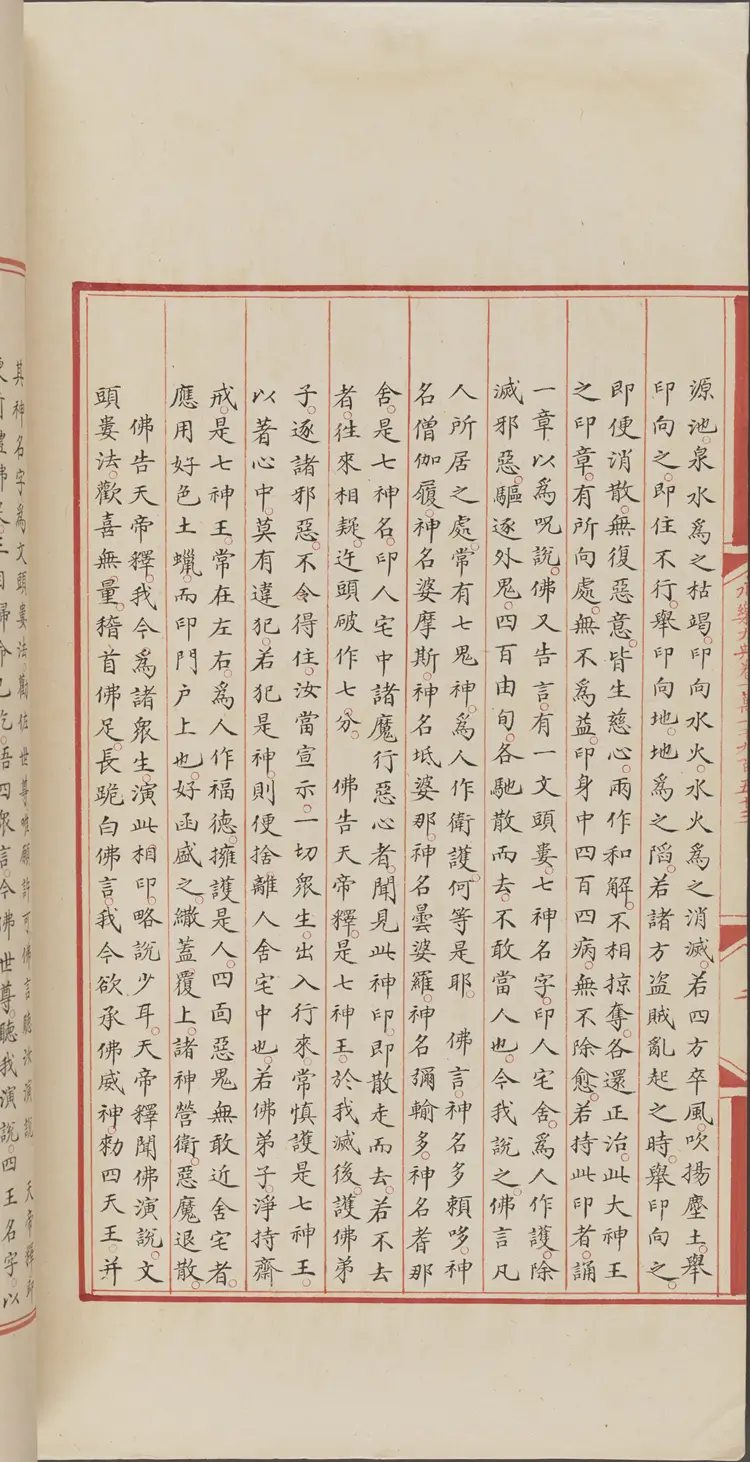 源池。泉水爲之枯竭。印向水火。水火爲之消滅。若四方卒風。吹揚塵土。舉
印向之。即住不行。舉印向地。地爲之㨶。若諸方盜賊亂起之時。舉印向之。
即便消散。無復惡意。皆生慈心。兩作和解。不相掠奪。各還正治。此大神王
之印章。有所向處。無不爲益。印身中四百四病。無不除愈。若持此印者。誦
一章以爲呪說。佛又告言。有一文頭婁。七神名字。印人宅舍。爲人作護。除
滅邪惡。驅逐外鬼。四百由旬。各馳散而去。不敢當人也。今我說之。佛言凡
人所居之處。常有七鬼神。爲人作衛護。何等是耶。 佛言。神名多賴哆。神
名僧伽履。神名婆摩斯。神名坻婆那。神名曇婆羅。神名彌輸多。神名耆那
舍。是七神名。印人宅中諸魔行惡心者。聞見此神印。即散走而去。若不去
者。往來相疑。迮頭破作七分。 佛告天帝釋。是七神王。於我滅後。護佛弟
子。逐諸邪惡。不令得住。汝當宣示。一切衆生。出入行來。常慎護是七神王。
以著心中。莫有違犯。若犯是神。則便捨離人舍宅中也。若佛弟子。淨持齋
戒。是七神王。常在左右。爲人作福德。擁護是人。四面惡鬼無敢近舍宅者。
應用好色土蠟。而印門戶上也。好函盛之。繖蓋覆上。諸神營衛。惡魔退散。
佛告天帝釋。我今爲諸衆生。演此相印。略說少耳。天帝釋聞佛演說。文
頭婁法。歡喜無量。稽首佛足。長跪白佛言。我今欲承佛威神。勑四天王。并
其神名字爲文頭婁法勸佐世尊唯願許可佛言聽汝演說 天帝釋即